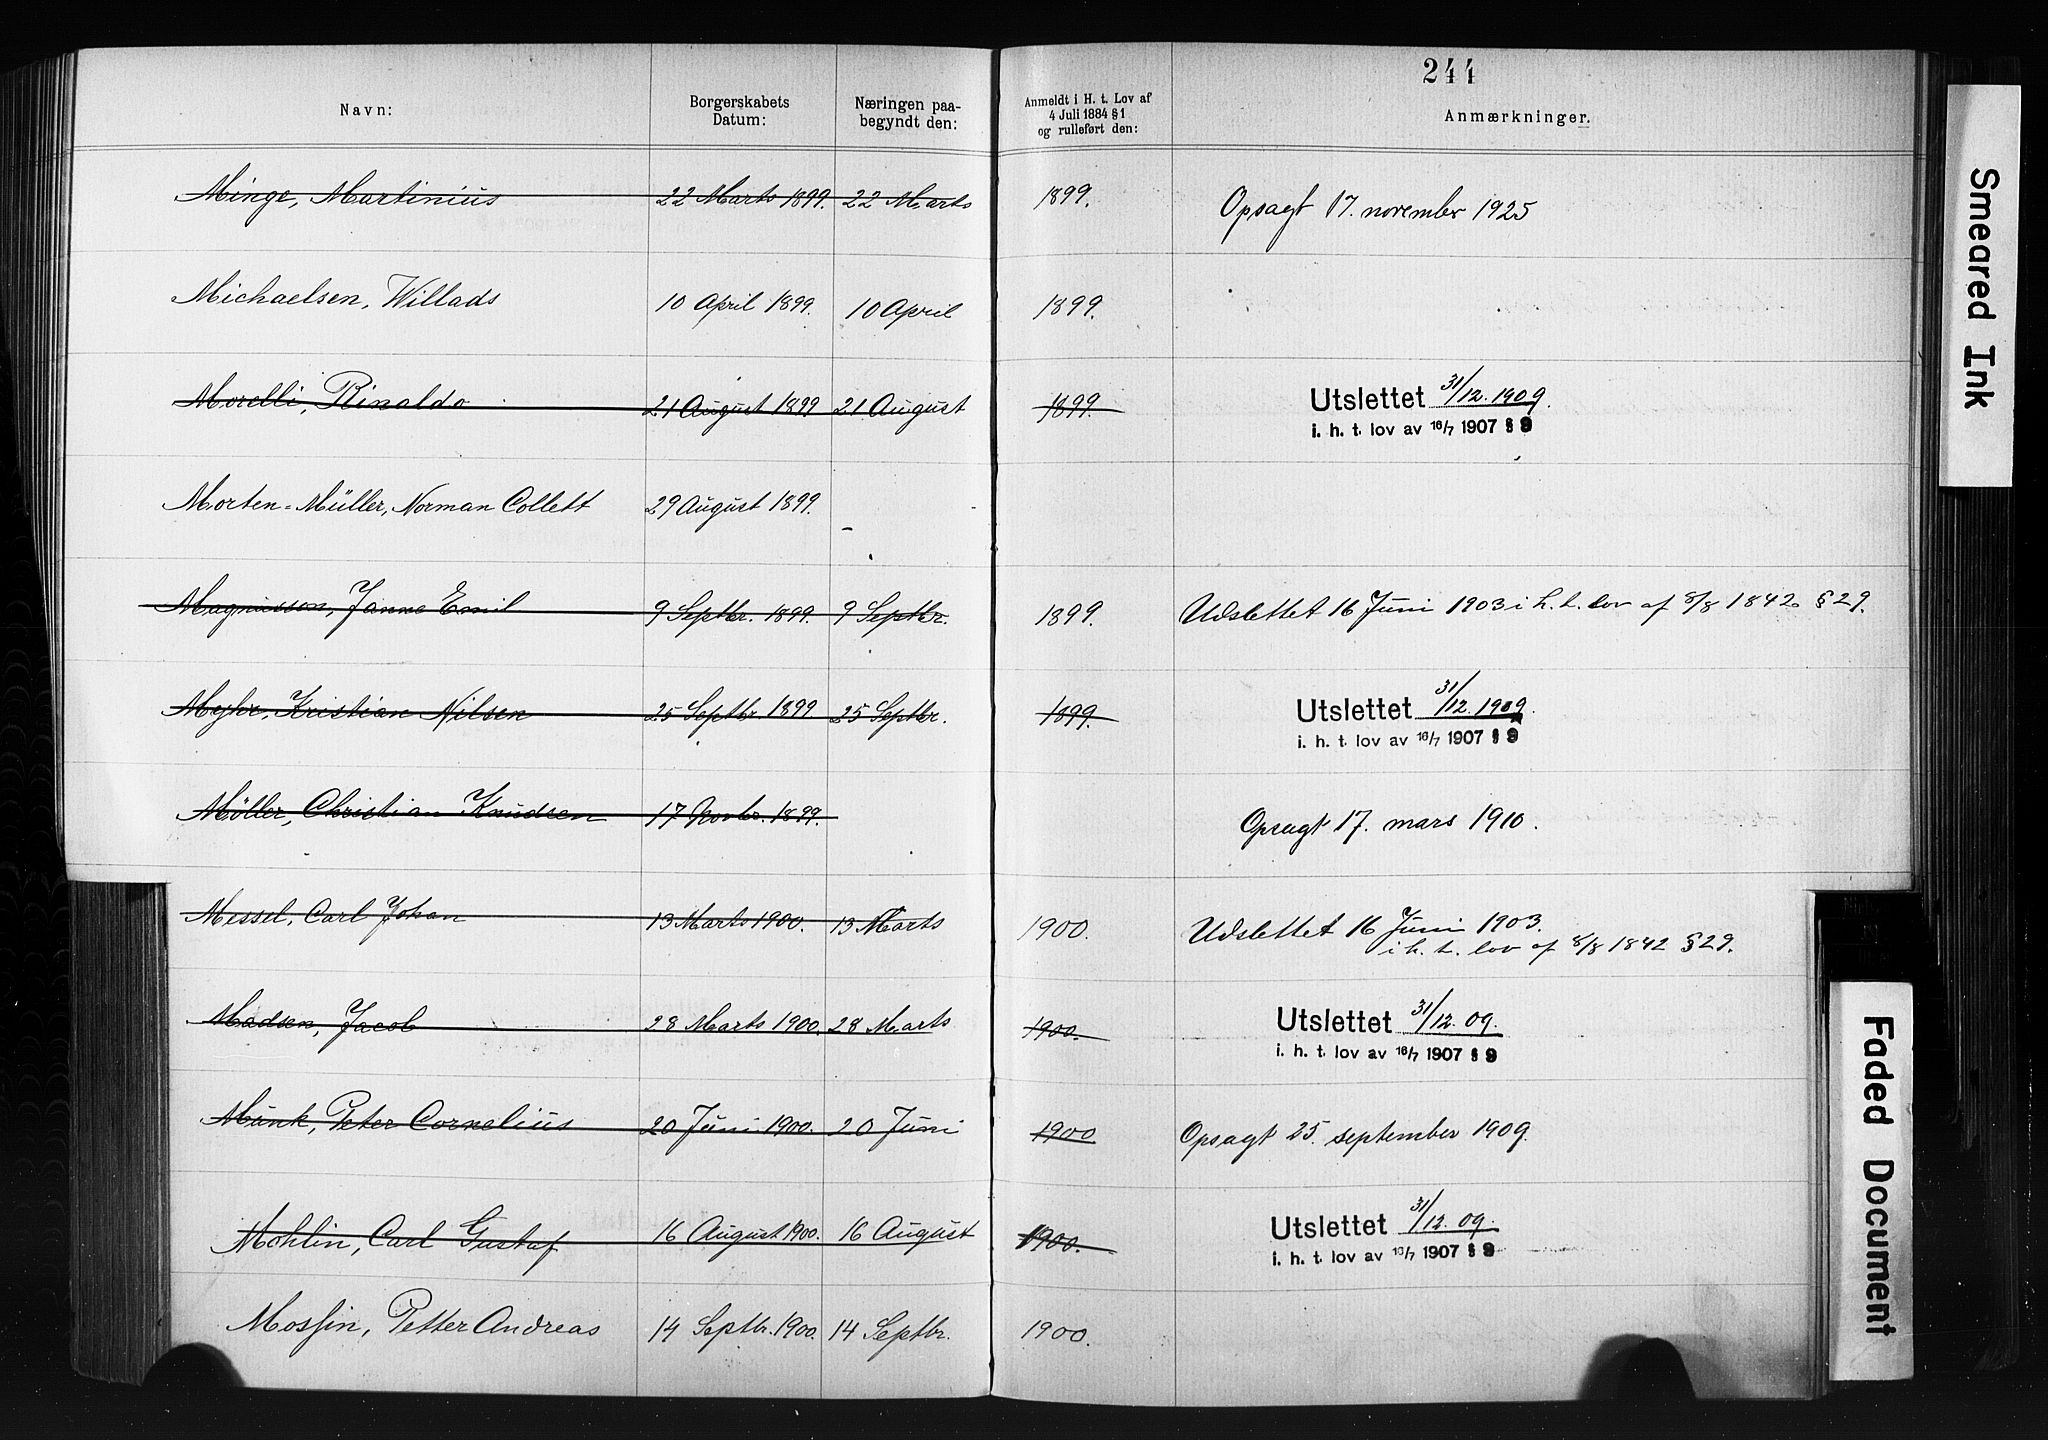 244
Navn: Borgerskabets Datum: Næringen paa-begyndt den: Anmeldt i H. t. Lov af 4 Juli 1884 § 1 og rulleført den: Anmærkninger.
Minge, Martinius 22 Marts 1899. 22 Marts 1899. Opsagt 17. november 1925
Michaelsen, Willads 10 April 1899. 10 April 1899.
Morelli, Rinaldo 21 August 1899 21 August 1899. Utslettet 31/12. 1909.
i. h. t. lov av 16/7 1907 § 9
Morten-Müller, Norman Collett 29 August 1899. -
Magnusson, Janne Emil 9 Septbr. 1899. 9 Septbr. 1899. Udslettet 16 Juni 1903 i h. t. lov af 8/8 1842 § 29.
Myhr, Kristian Nilsen 25 Septbr. 1899 25 Septbr. 1899. Utslettet 31/12. 1909.
i. h. t. lov av 16/7 1907 § 9
Möller, Christian Knudsen 17 Novbr. 1899. Opsagt 17. mars 1910.
Messel, Carl Johan 13 Marts 1900. 13 Marts 1900. Udslettet 16 Juni 1903.
i h. t. lov af 8/8 1842 § 29.
Madsen, Jacob 28 Marts 1900. 28 Marts 1900. Utslettet 31/12. 09.
i. h. t. lov av 16/7 1907 § 9
Munk, Peter Cornelius 20 Juni 1900. 20 Juni 1900 Opsagt 25. september 1909.
Mohlin, Carl Gustaf 16 August 1900. 16 August 1900. Utslettet 31/12. 09.
i. h. t. lov av 16/7 1907 § 9
Mossin, Petter Andreas 14 Septbr. 1900. 14 Septbr. 1900.
Smeared Ink
Faded Document